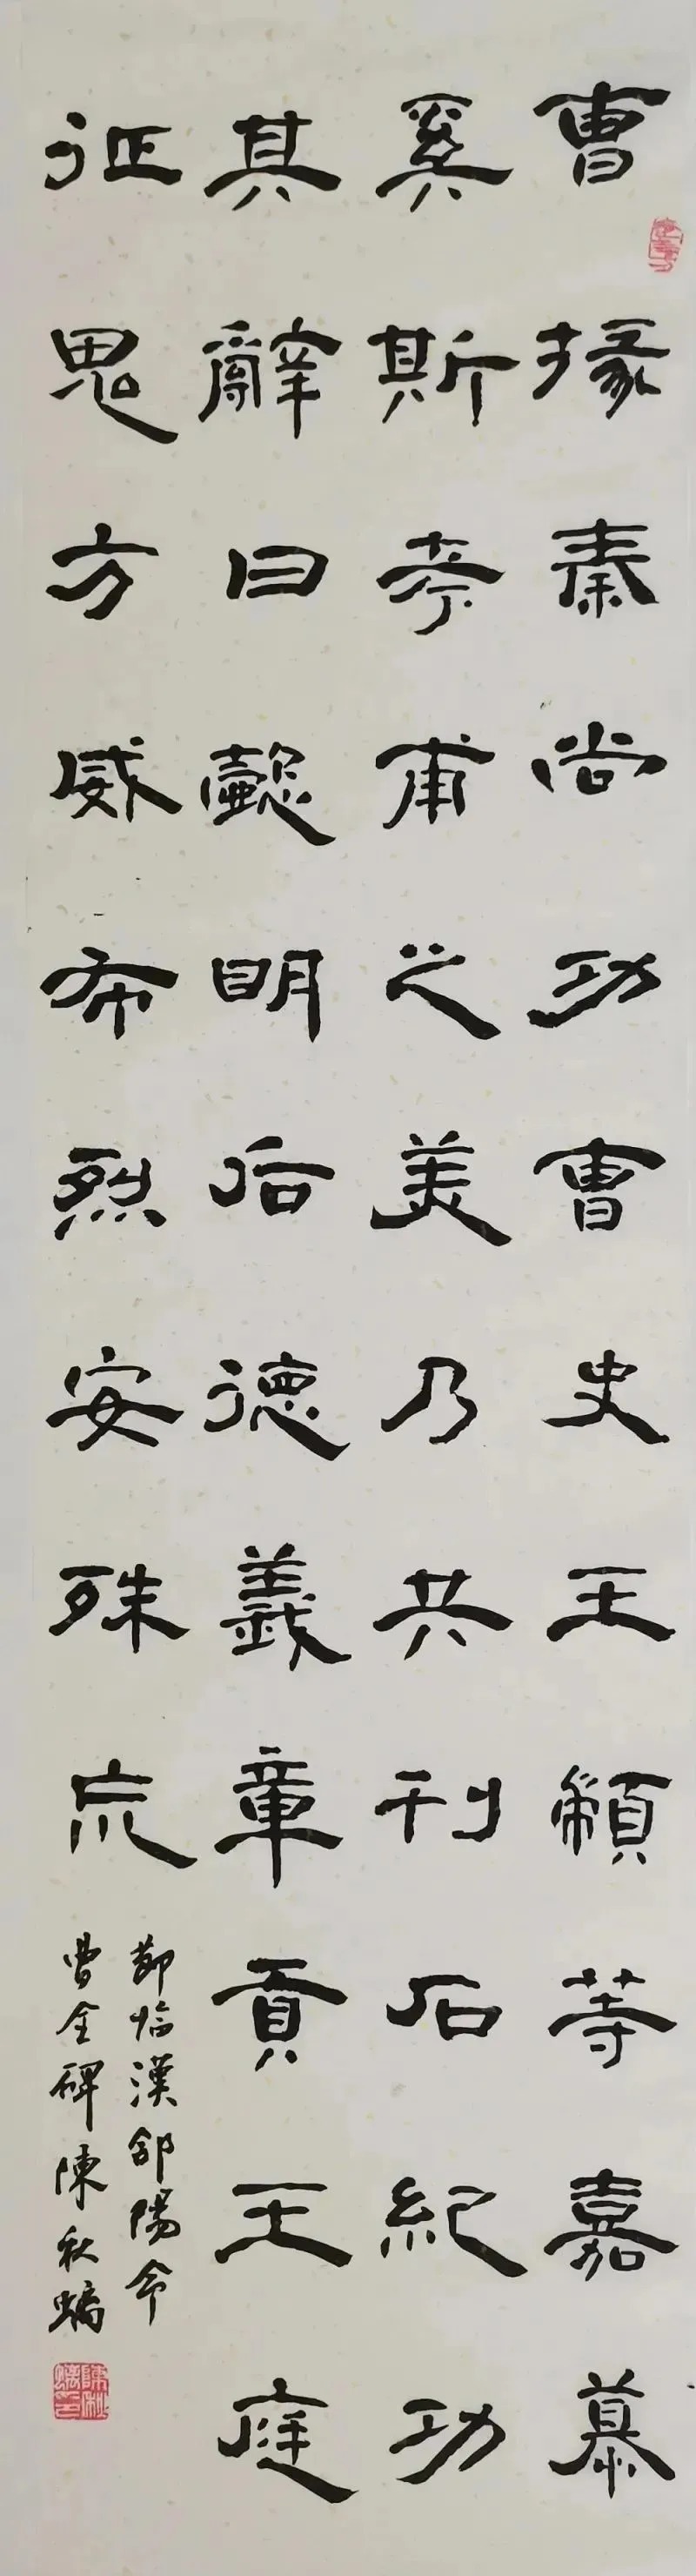 曹掾秦尚功曹史王顓等嘉慕
奚斯考甫之美乃共刊石紀功
其辭曰懿明后德義章貢王庭
征鬼方威布烈安殊荒
節臨漢郃陽令
曹全碑陳秋